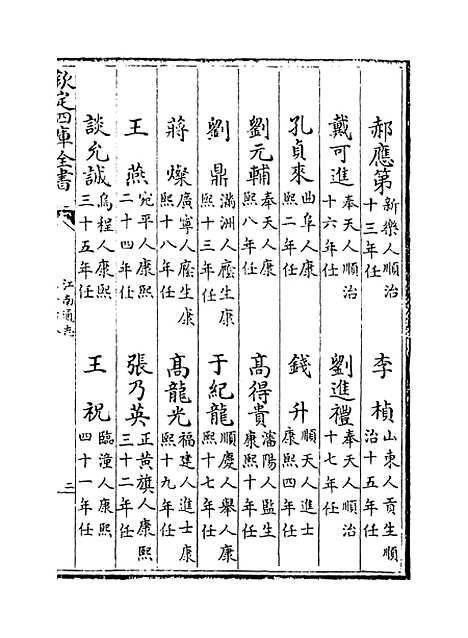 郝應第新樂人順治十三年任
李楨山東人貢生順治十五年任
戴可進奉天人順治十六年任
劉進禮奉天人順治十七年任
孔貞來曲阜人康熙二年任
錢升順天人進士康熙四年任
劉元輔奉天人康熙八年任
高得貴瀋陽人監生康熙十年任
劉鼎滿洲人廕生康熙十三年任
于紀龍順慶人舉人康熙十七年任
蔣燦廣寧人廕生康熙十八年任
高龍光福建人進士康熙十九年任
王燕宛平人康熙二十四年任
張乃英正黃旗人康熙三十二年任
談允誠烏程人康熙三十五年任
王祝臨潼人康熙四十一年任
欽定四庫全書
江南通志
二